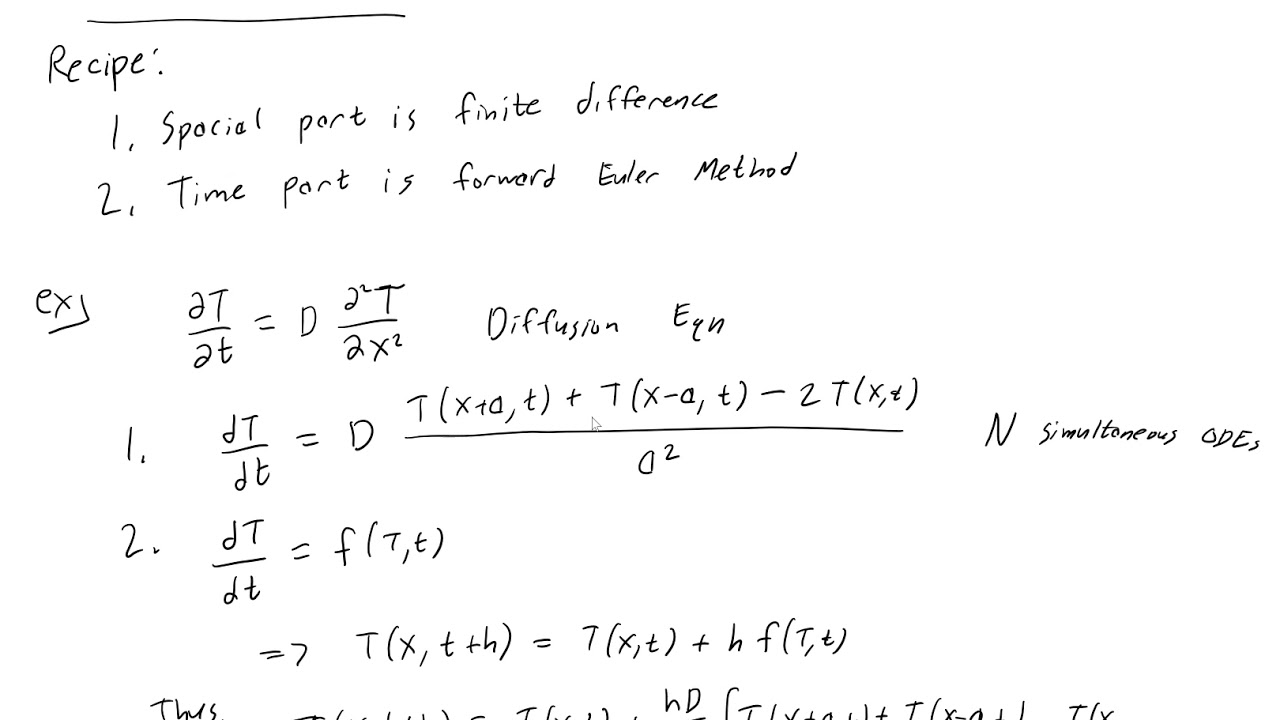 Recipe:
1. Spacial part is finite difference
2. Time part is forward Euler Method
ex) ∂T/∂t = D ∂²T/∂x² Diffusion Eqn
1. dT/dt = D (T(x+a, t) + T(x-a, t) - 2T(x,t))/a² N simultaneous ODEs
2. dT/dt = f(T,t)
=> T(x, t+h) = T(x,t) + h f(T,t)
Thus